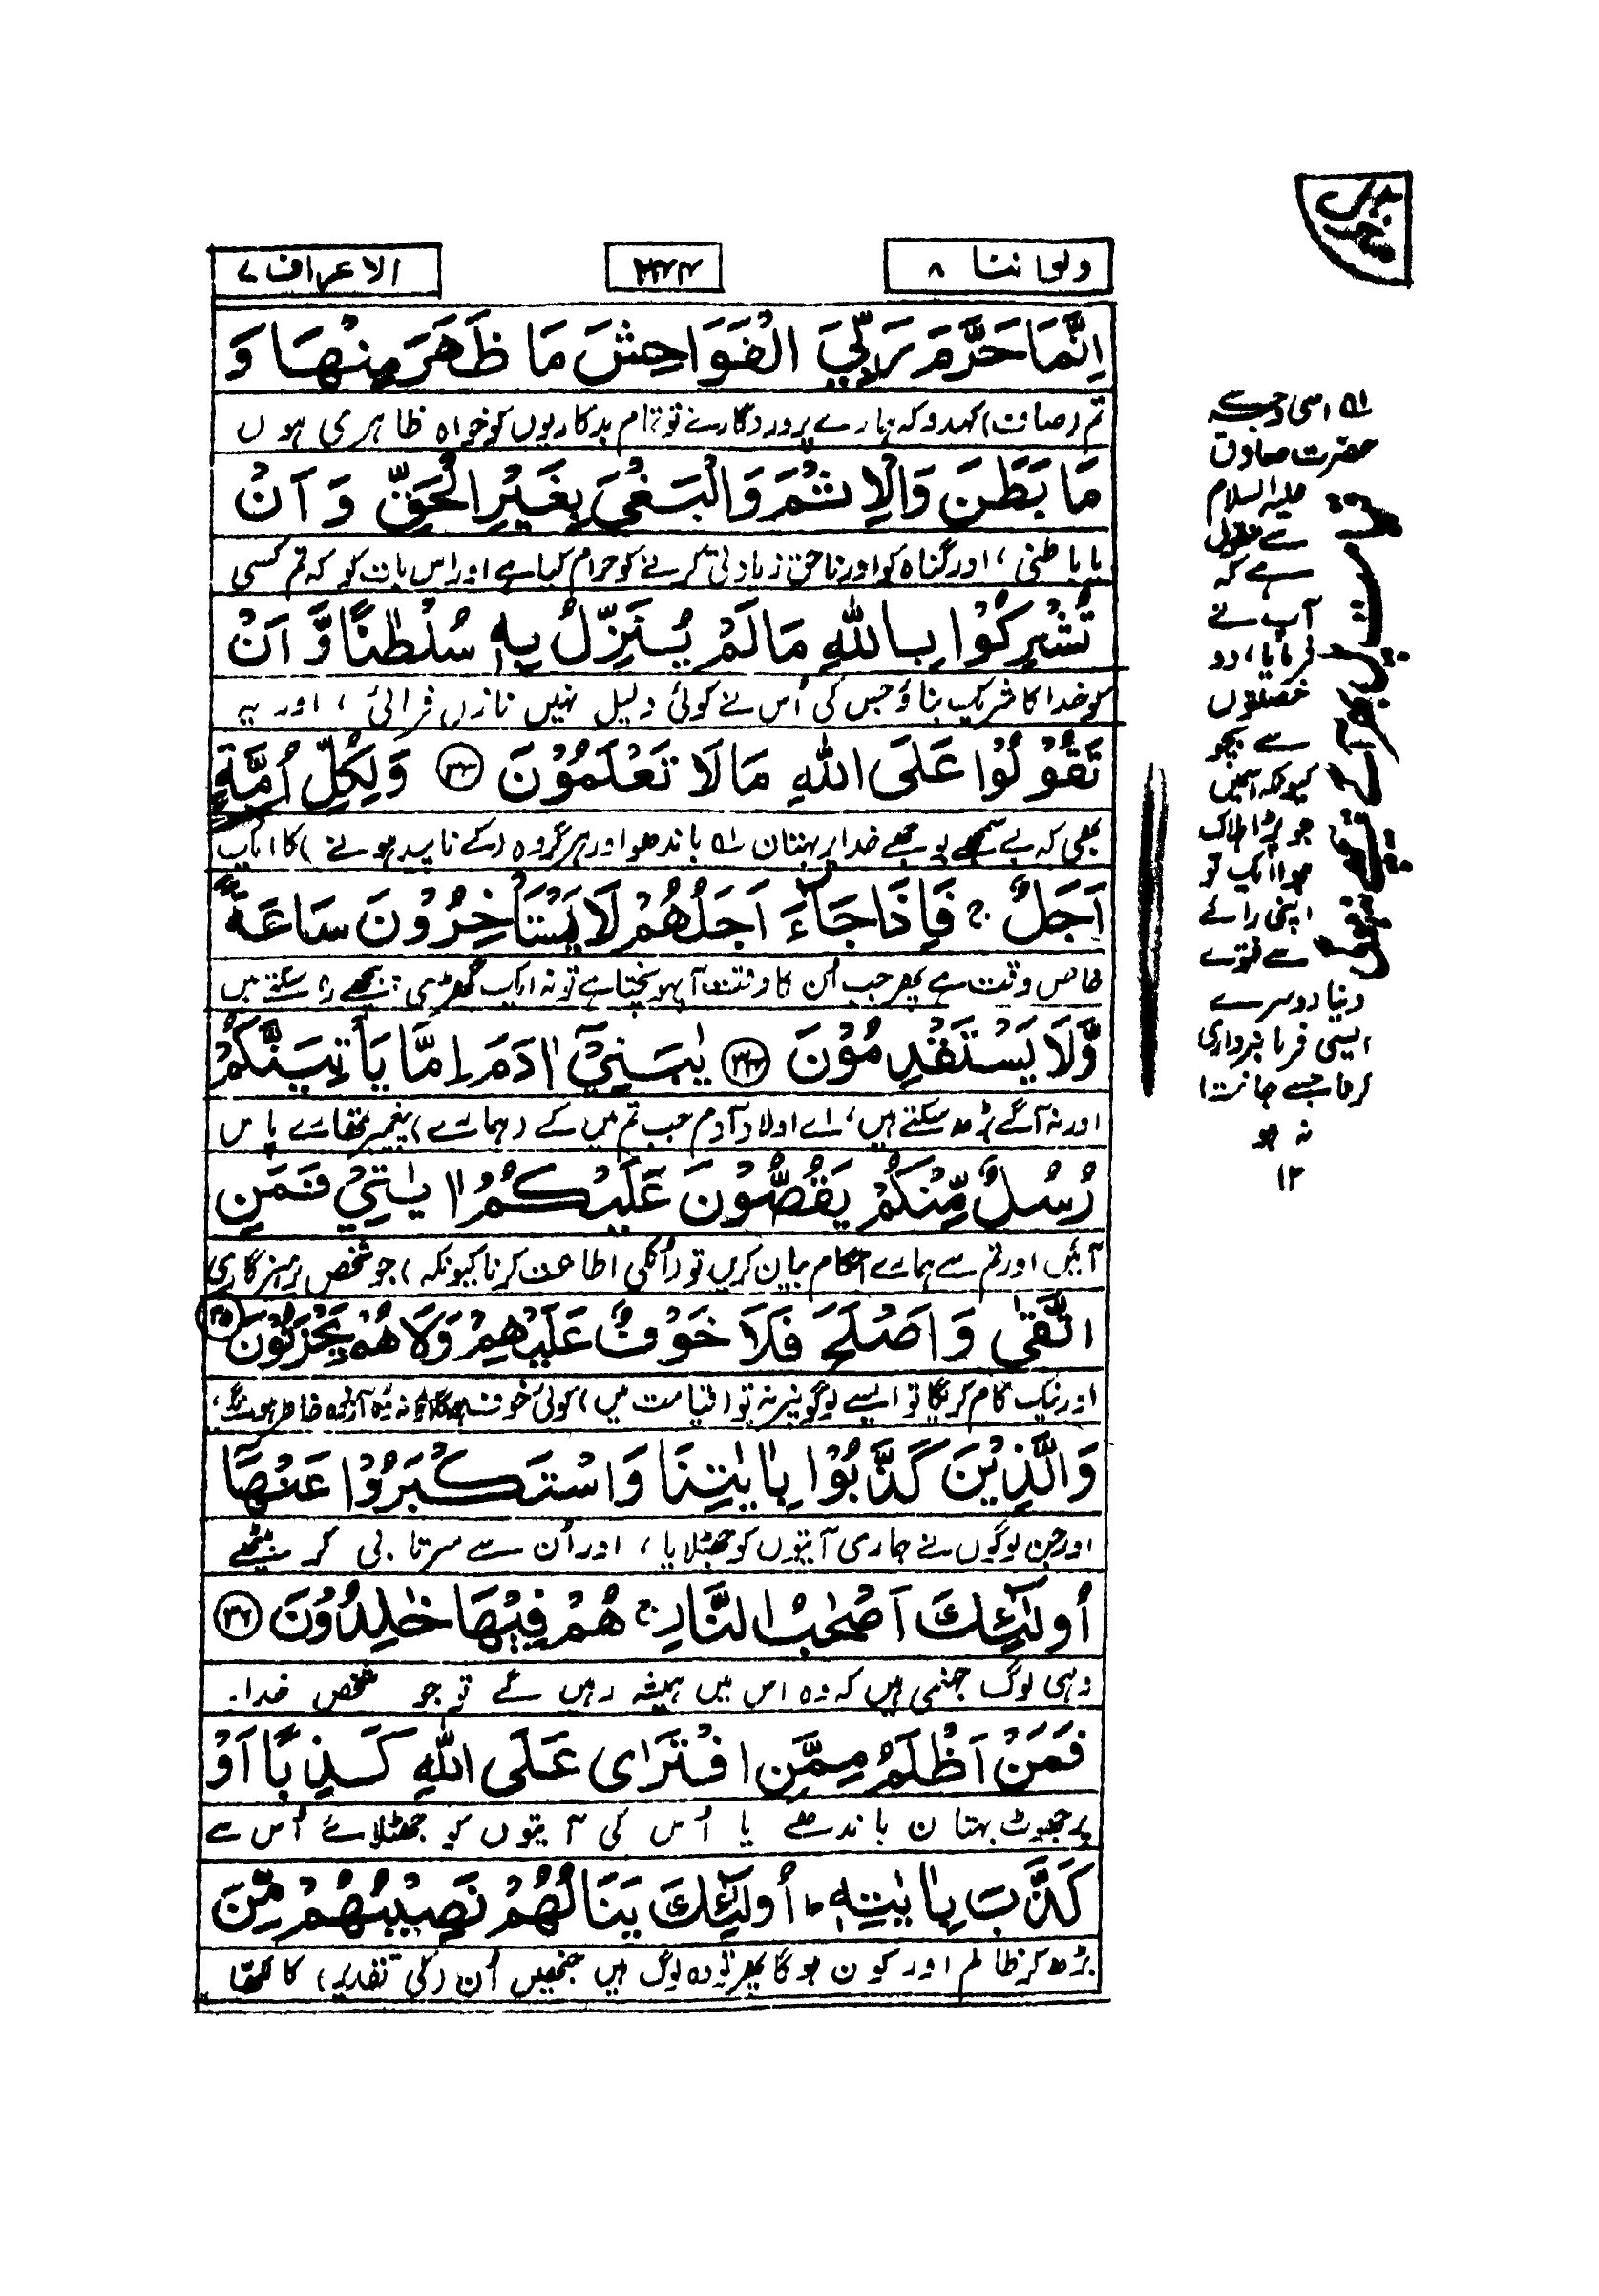 ولو اننا ۸
۲۴۴
الاعراف ۷
اِنَّمَا حَرَّمَ رَبِّيَ الْفَوَاحِشَ مَا ظَهَرَ مِنْهَا وَ
تم (صاف) کہدو کہ ہمارے پروردگار نے تو تمام بدکاریوں کو خواہ ظاہری ہوں
مَا بَطَنَ وَالْاِثْمَ وَالْبَغْيَ بِغَيْرِ الْحَقِّ وَ اَنْ
یا باطنی، اور گناہ کو اور ناحق زیادتی کرنے کو حرام کیا ہے اور اس بات کو کہ تم کسی
تُشْرِكُوْا بِاللّٰهِ مَا لَمْ يُنَزِّلْ بِهٖ سُلْطٰنًا وَّ اَنْ
کو خدا کا شریک بناؤ جس کی اُس نے کوئی دلیل نہیں نازل فرمائی، اور یہ
تَقُوْلُوْا عَلَى اللّٰهِ مَا لَا تَعْلَمُوْنَ ۳۳ وَ لِكُلِّ اُمَّةٍ
بھی کہ بے سمجھے بوجھے خدا پر بہتان ۱؎ باندھو اور ہر گروہ (کے ناپید ہونے) کا ایک
اَجَلٌ ۚ فَاِذَا جَآءَ اَجَلُهُمْ لَا يَسْتَاْخِرُوْنَ سَاعَةً
خاص وقت ہے پھر جب اُن کا وقت آ پہونچتا ہے تو نہ ایک گھڑی پیچھے رہ سکتے ہیں
وَّ لَا يَسْتَقْدِمُوْنَ ۳۴ يٰبَنِيْٓ اٰدَمَ اِمَّا يَاْتِيَنَّكُمْ
اور نہ آگے بڑھ سکتے ہیں، اے اولاد آدم جب تم میں کے (ہمارے) پیغمبر تمھارے پاس
رُسُلٌ مِّنْكُمْ يَقُصُّوْنَ عَلَيْكُمْ اٰيٰتِيْ فَمَنِ
آئیں اور تم سے ہمارے احکام بیان کریں تو (اُنکی اطاعت کرنا کیونکہ) جو شخص پرہیزگاری
اتَّقٰى وَ اَصْلَحَ فَلَا خَوْفٌ عَلَيْهِمْ وَ لَا هُمْ يَحْزَنُوْنَ ۳۵
اور نیک کام کریگا تو ایسے لوگوں پر نہ تو (قیامت میں) کوئی خوف ہوگا اور نہ وہ آزردہ خاطر ہونگے،
وَ الَّذِيْنَ كَذَّبُوْا بِاٰيٰتِنَا وَ اسْتَكْبَرُوْا عَنْهَآ
اور جن لوگوں نے ہماری آیتوں کو جھٹلایا، اور اُن سے سرتابی کر بیٹھے
اُولٰٓئِكَ اَصْحٰبُ النَّارِ ۚ هُمْ فِيْهَا خٰلِدُوْنَ ۳۶
وہی لوگ جہنمی ہیں کہ وہ اس میں ہمیشہ رہیں گے تو جو شخص خدا
فَمَنْ اَظْلَمُ مِمَّنِ افْتَرٰى عَلَى اللّٰهِ كَذِبًا اَوْ
پر جھوٹ بہتان باندھے یا اُس کی آیتوں کو جھٹلائے اُس سے
كَذَّبَ بِاٰيٰتِهٖ ؕ اُولٰٓئِكَ يَنَالُهُمْ نَصِيْبُهُمْ مِّنَ
بڑھ کر ظالم اور کون ہو گا پھر تو وہ لوگ ہیں جنھیں اُن (کی تقدیر) کا لکھا
۱؎ اسی وجہ سے
حضرت صادق
علیہ السلام
سے منقول
ہے کہ
آپ نے
فرمایا، دو
خصلتوں
سے بچو
کیونکہ انھیں
جو پڑا ہلاک
ہوا ایک تو
اپنی رائے
سے فتوے
دینا دوسرے
ایسی فرمانبرداری
کرنا جسے جانتا
نہ ہو
۱۲